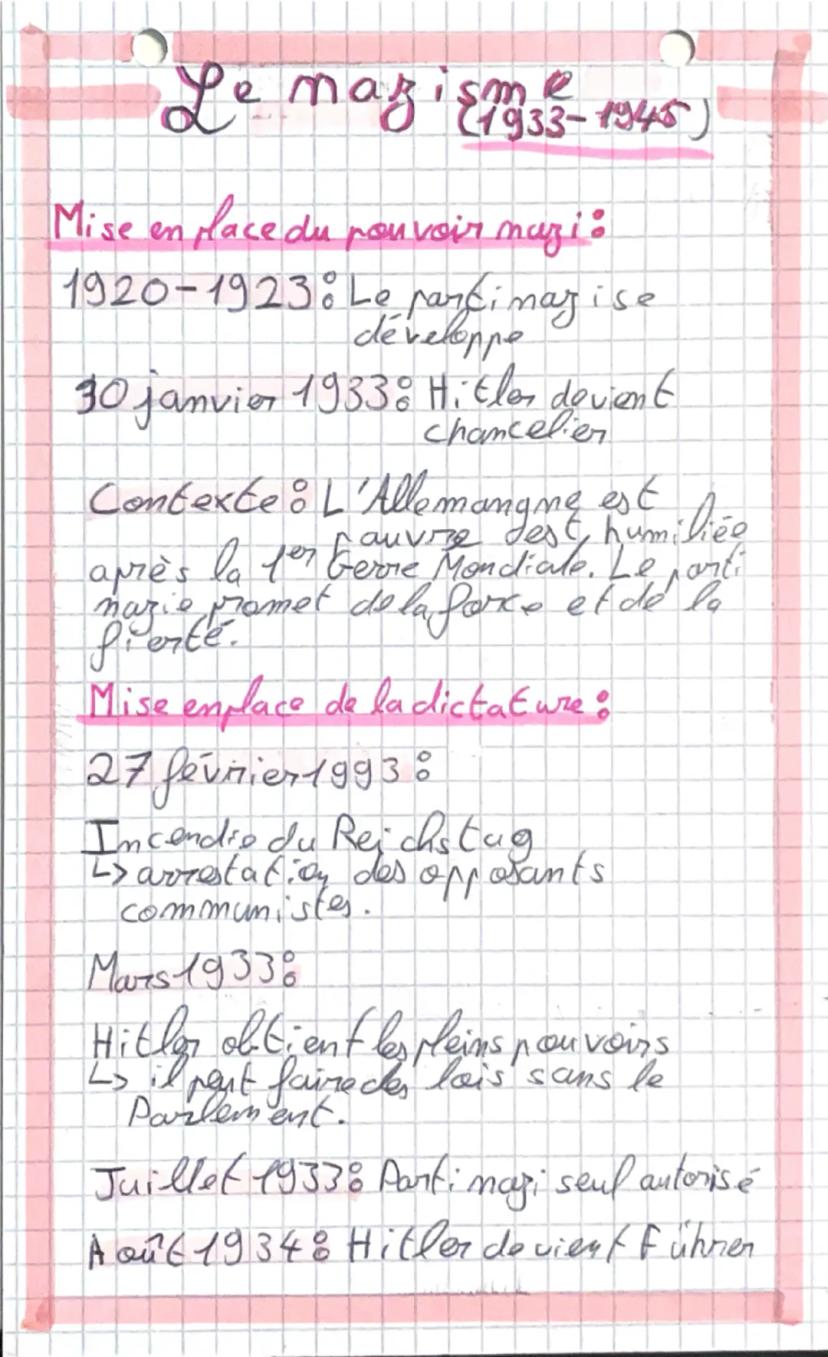 Le nazisme
(1933-1945)
Mise en place du pouvoir nazi :
1920-1923 : Le parti nazi se
développe
30 janvier 1933 : Hitler devient
chancelier
Contexte : L'Allemangne est
pauvre et humiliée
après la 1er Gerre Mondiale. Le parti
nazie promet de la force et de la
fierté.
Mise en place de la dictature :
27 février 1993 :
Incendie du Reichstag
↳ arrestation des opposants
communistes.
Mars 1933 :
Hitler obtient les pleins pouvoirs
↳ il peut faire des lois sans le
Parlement.
Juillet 1933 : Parti nazi seul autorisé
Août 1934 : Hitler devient Führer